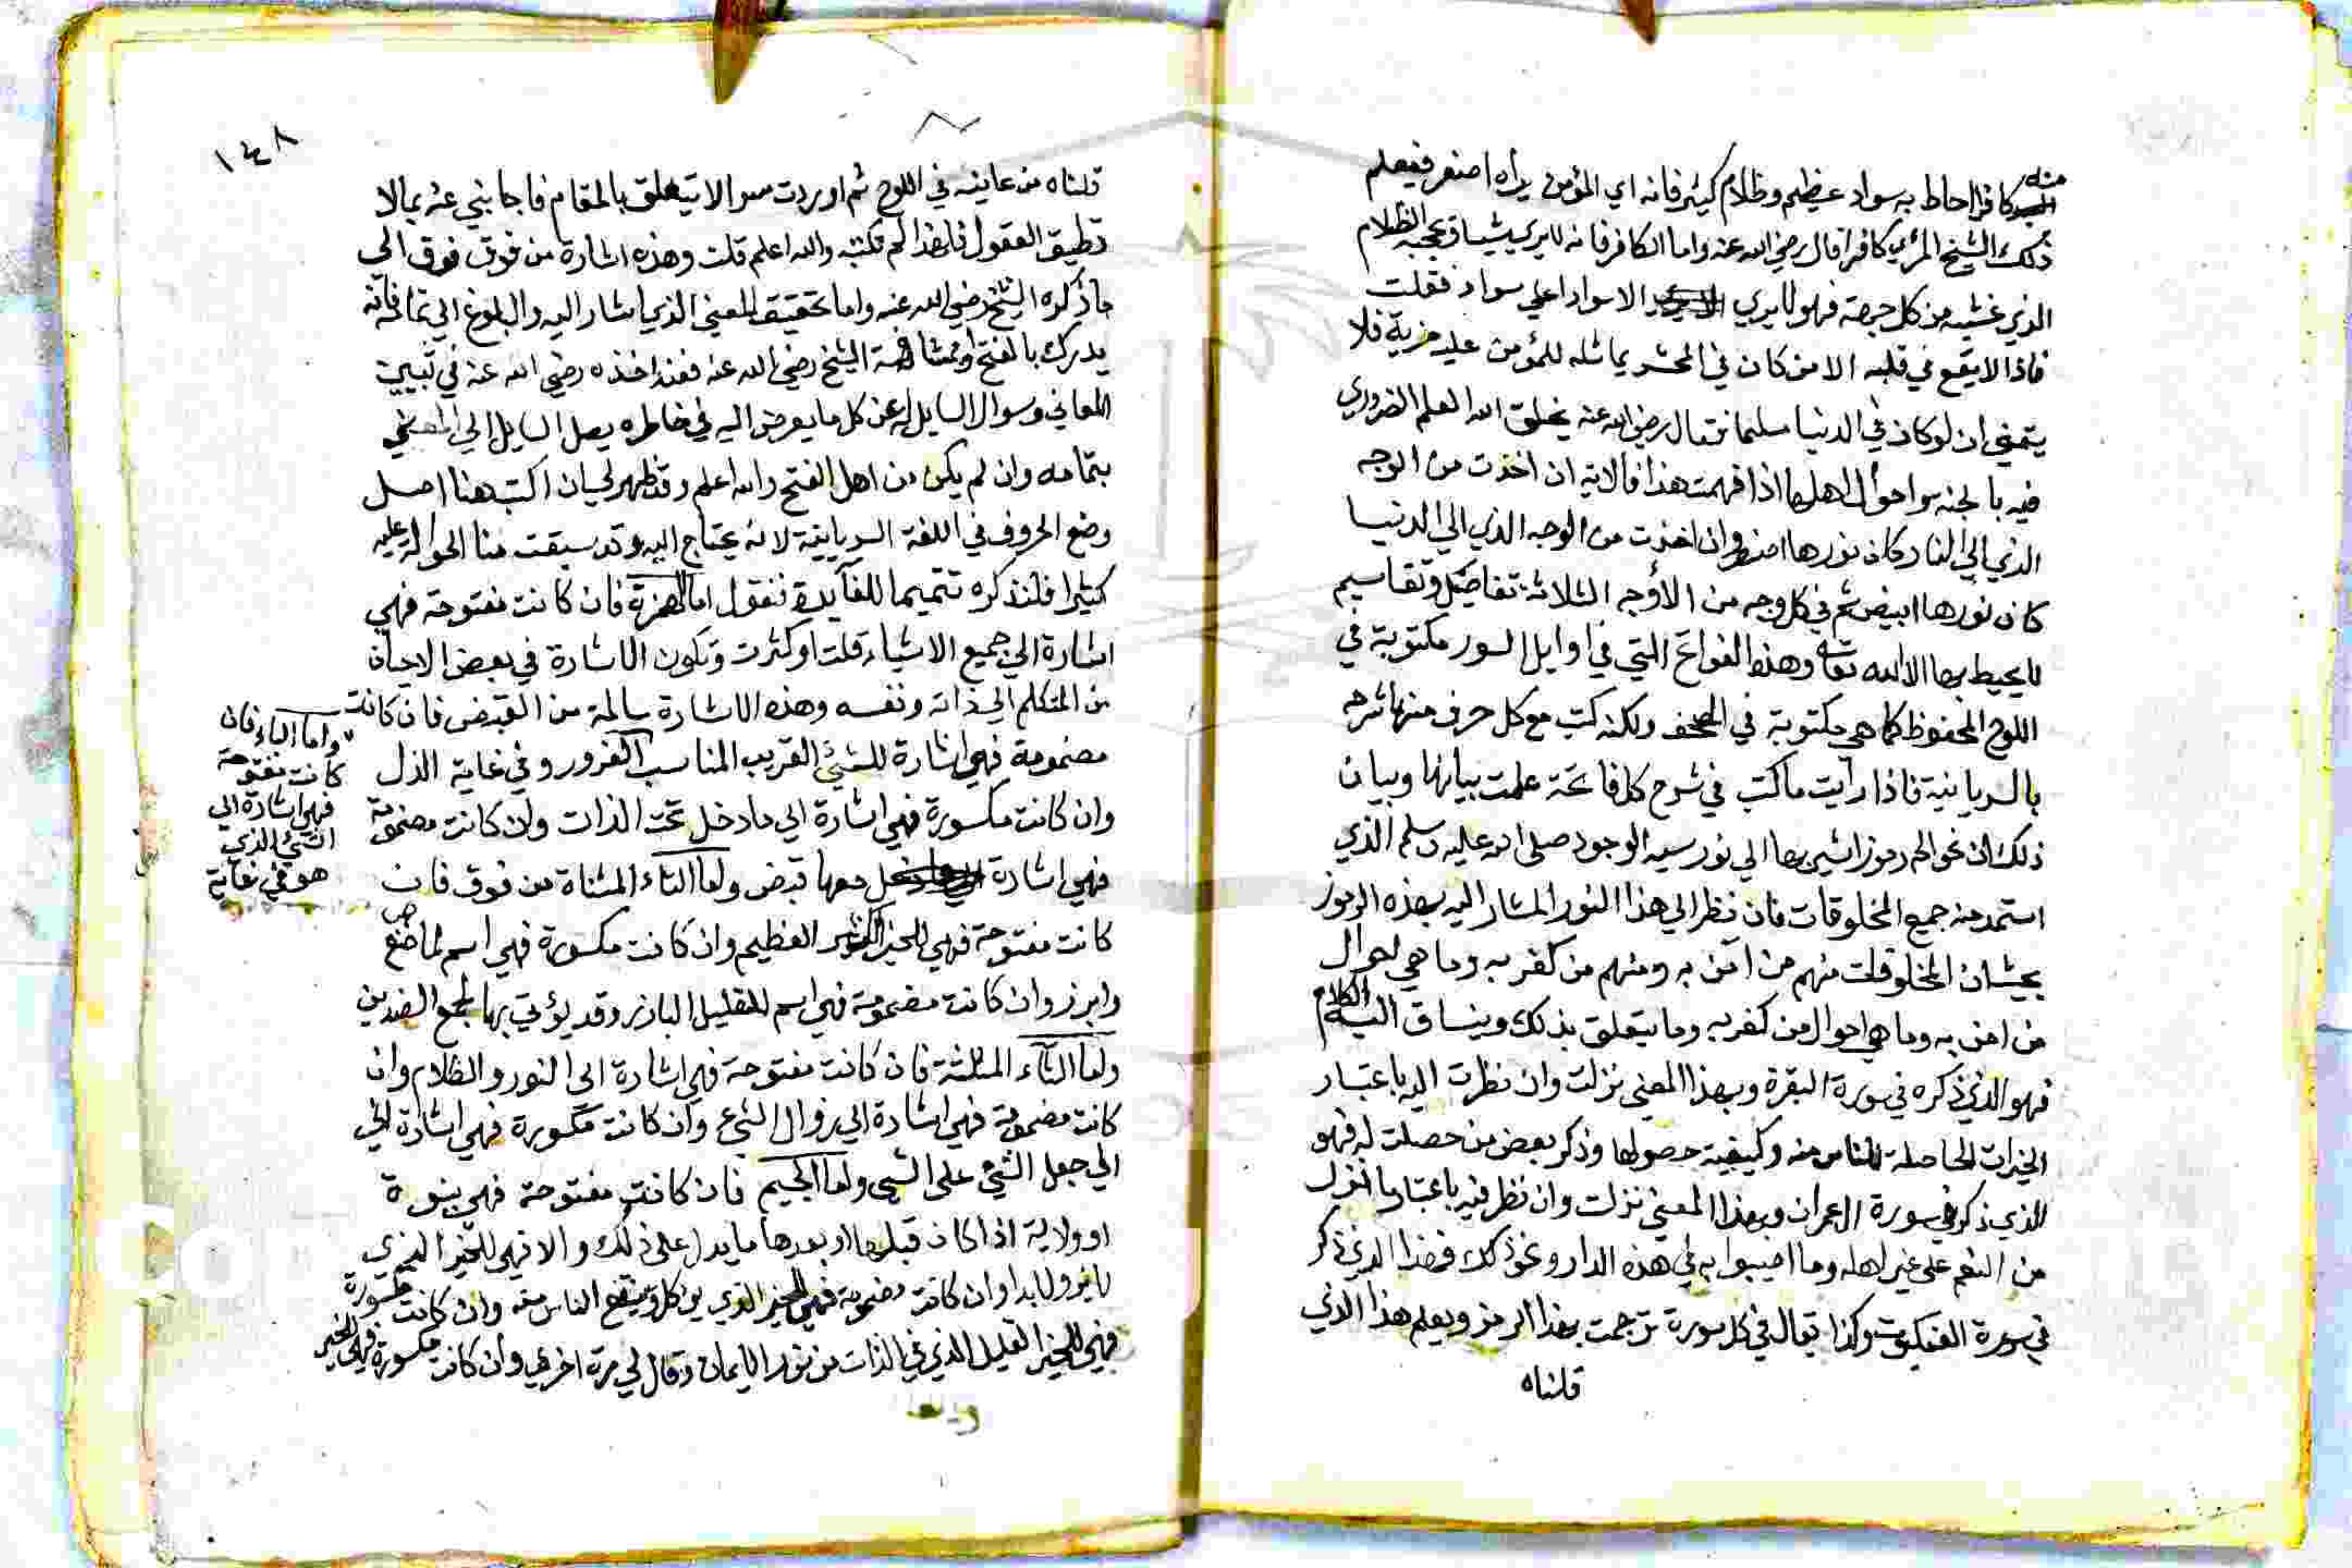 منه كافر احاط به سواد عظيم وظلام كثير فانه اي المؤمن يراه اصفر فيعلم
ذلك الشيخ المرئي كافرا قال رضي الله عنه واما الكافر فانه لا يري شيا وعجبه الظلام
الذي غشيه من كل جهة فهو لا يري الا سوادا علي سواد فقلت
فاذا لا يقع في قلبه الا من كان في المحشر يماثله للمؤمن عليه مزية فلا
يتمني ان لو كان في الدنيا مسلما فقال رضي الله عنه يخلق الله العلم الضروري
فيه بالجنة واحوال اهلها اذا فهمت هذا فالاية ان اخذت من الوجه
الذي الي النار كان نورها اصفر وان اخذت من الوجه الذي الي الدنيا
كان نورها ابيض ثم في كل وجه من الأوجه الثلاثة تفاصيل وتقاسيم
لا يحيط بها الا الله تعالى وهذه الفواتح التي في اوايل السور مكتوبة في
اللوح المحفوظ كما هي مكتوبة في المصحف ولكنه كتب مع كل حرف منها شرحه
بالسريانية فاذا رايت ما كتب في شرح كل فاتحة علمت بيانها وبيان
ذلك ان نحو الم رموز اشير بها الي نور سيد الوجود صلى الله عليه وسلم الذي
استمد منه جميع المخلوقات فان نظر الي هذا النور المشار اليه بهذه الرموز
بحيث ان المخلوقات منهم من امن به ومنهم من كفر به وما هي احوال
من امن به وما هي احوال من كفر به وما يتعلق بذلك وينساق اليه الكلام
فهو الذي ذكره في سورة البقرة وبهذا المعني نزلت وان نظرت اليه باعتبار
الخيرات الحاصلة للناس منه وكيفية حصولها وذكر بعض من حصلت له فهو
الذي ذكر في سورة ال عمران وبهذا المعني نزلت وان نظر فيه باعتبار ما نزل
من النقم على غير اهله وما اصيبوا به في هذه الدار ونحو ذلك فهذا الذي ذكر
في سورة العنكبوت وكذا يقال في كل سورة ترجمت بهذا الرمز ويعلم هذا الذي
قلناه
١٤٨
قلناه من عاينه في اللوح ثم اوردت سوالا يتعلق بالمقام فاجابني عنه بما لا
تطيق العقول فلهذا لم نكتبه والله اعلم قلت وهذه اشارة من فوق فوق الي
ما ذكره الشيخ رضي الله عنه واما تحقيق المعني الذي اشار اليه والبلوغ الي تمامه فانه
يدرك بالفتح او بمشافهة الشيخ رضي الله عنه فعند اخذه رضي الله عنه في تبيين
المعاني وسوال السايل له عن كل ما يعرض اليه في خاطره يصل السايل الي المعني
بتمامه وان لم يكن من اهل الفتح والله اعلم وقد ظهر لي ان اكتب هنا اصل
وضع الحروف في اللغة السريانية لانه يحتاج اليه وقد سبقت منا الحوالة عليه
كثيرا فلنذكره تتميما للفآيدة فنقول اما الهمزة فان كانت مفتوحة فهي
اشارة الي جميع الاشياء قلت او كثرت وتكون الاشارة في بعض الاحيان
من المتكلم الي ذاته ونفسه وهذه الاشارة سالمة من القبض فان كانت
مضمومة فهي اشارة للشئ القريب المناسب واما الباء فان
كانت مفتوحة
فهي اشارة الي
الشئ الذي
هو في غاية
الغرور وفي غاية الذل
وان كانت مكسورة فهي اشارة الي ما دخل تحت الذات وان كانت مضمومة
فهي اشارة معها قبض واما التاء المثناة من فوق فان
كانت مفتوحة فهي للخير الكثير العظيم وان كانت مكسورة فهي اسم لما صنع
وابرز وان كانت مضمومة فهي اسم للقليل البارز وقد يؤتي بها لجمع الضدين
واما الثآء المثلثة فان كانت مفتوحة فهي اشارة الي النور والظلام وان
كانت مضمومة فهي اشارة الي زوال الشئ وان كانت مكسورة فهي اشارة الي
الي جعل الشئ على الشئ واما الجيم فان كانت مفتوحة فهي نبوة
او ولاية اذا كان قبلها او بعدها ما يدل على ذلك والا فهي للخير الذي
لا يزول ابدا وان كانت مضمومة فهي للخير الذي يوكل وينتفع الناس منه وان كانت مكسورة
فهي للخير القليل الذي في الذات من نور الايمان وقال لي مرة اخري وان كانت مكسورة فهي للخير